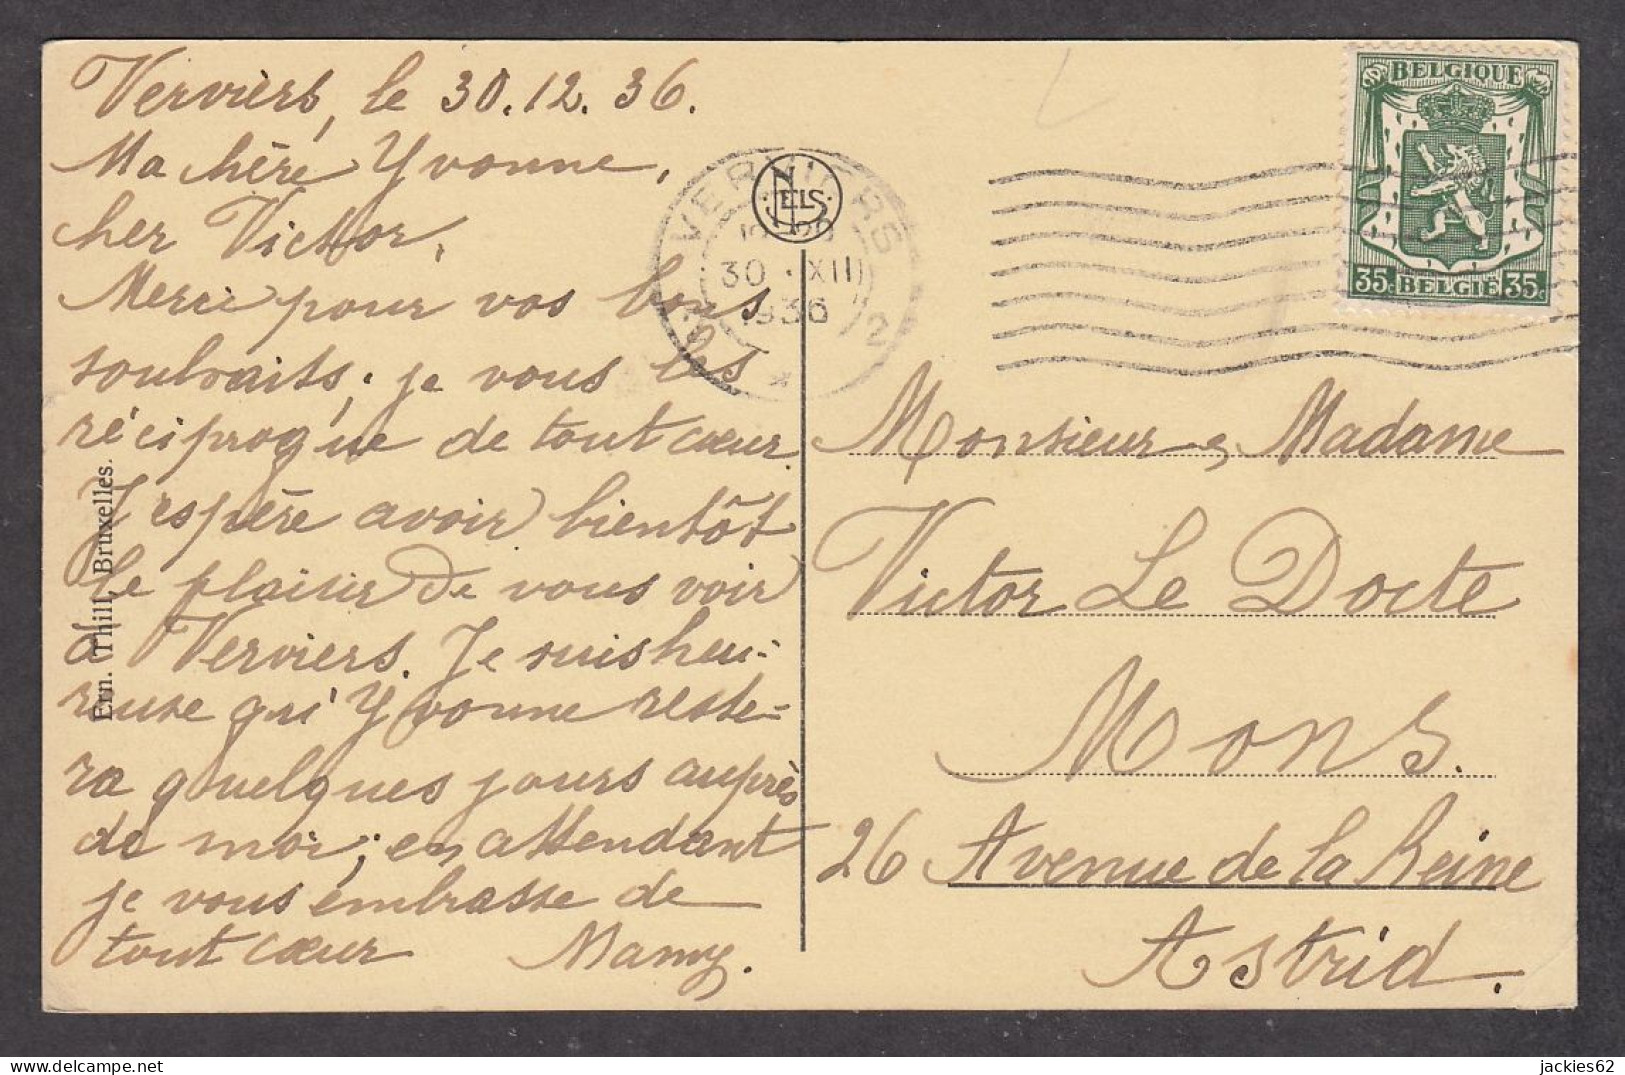 Verviers, le 30.12.36.
Ma chère Yvonne,
cher Victor,
Merci pour vos bons
souhaits; je vous les
réciproque de tout cœur.
J'espère avoir bientôt
le plaisir de vous voir
à Verviers. Je suis heu-
reuse qu'Yvonne reste-
ra quelques jours auprès
de moi; en attendant
je vous embrasse de
tout cœur Mamy.
Ern. Thill, Bruxelles.
NELS
VERVIERS
30 · XII
1936
2
BELGIQUE
35c BELGIË 35c
Monsieur & Madame
Victor Le Docte
Mons.
26 Avenue de la Reine
Astrid.
jackies62